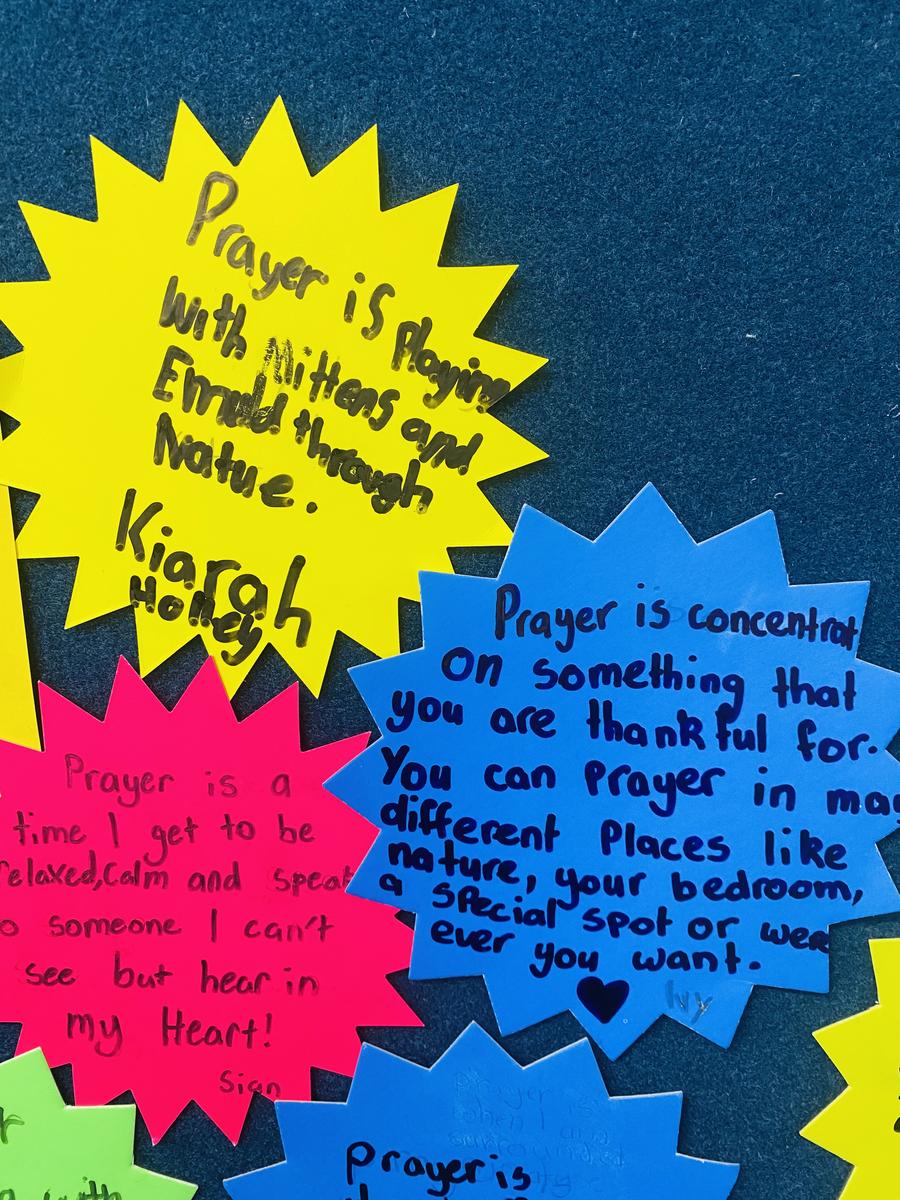 Prayer is Playing
With Mittens and
Emuld through
Natue.
Kiarah
Holley
Prayer is concentrat
On something that
you are thankful for.
You can Prayer in may
different Places like
nature, your bedroom,
a special spot or were
ever you want.
Ivy
Prayer is a
time I get to be
relaxed, Calm and speak
o someone I can't
see but hear in
my Heart!
Sian
Prayer is
when I am
surrounded
Prayer is
with